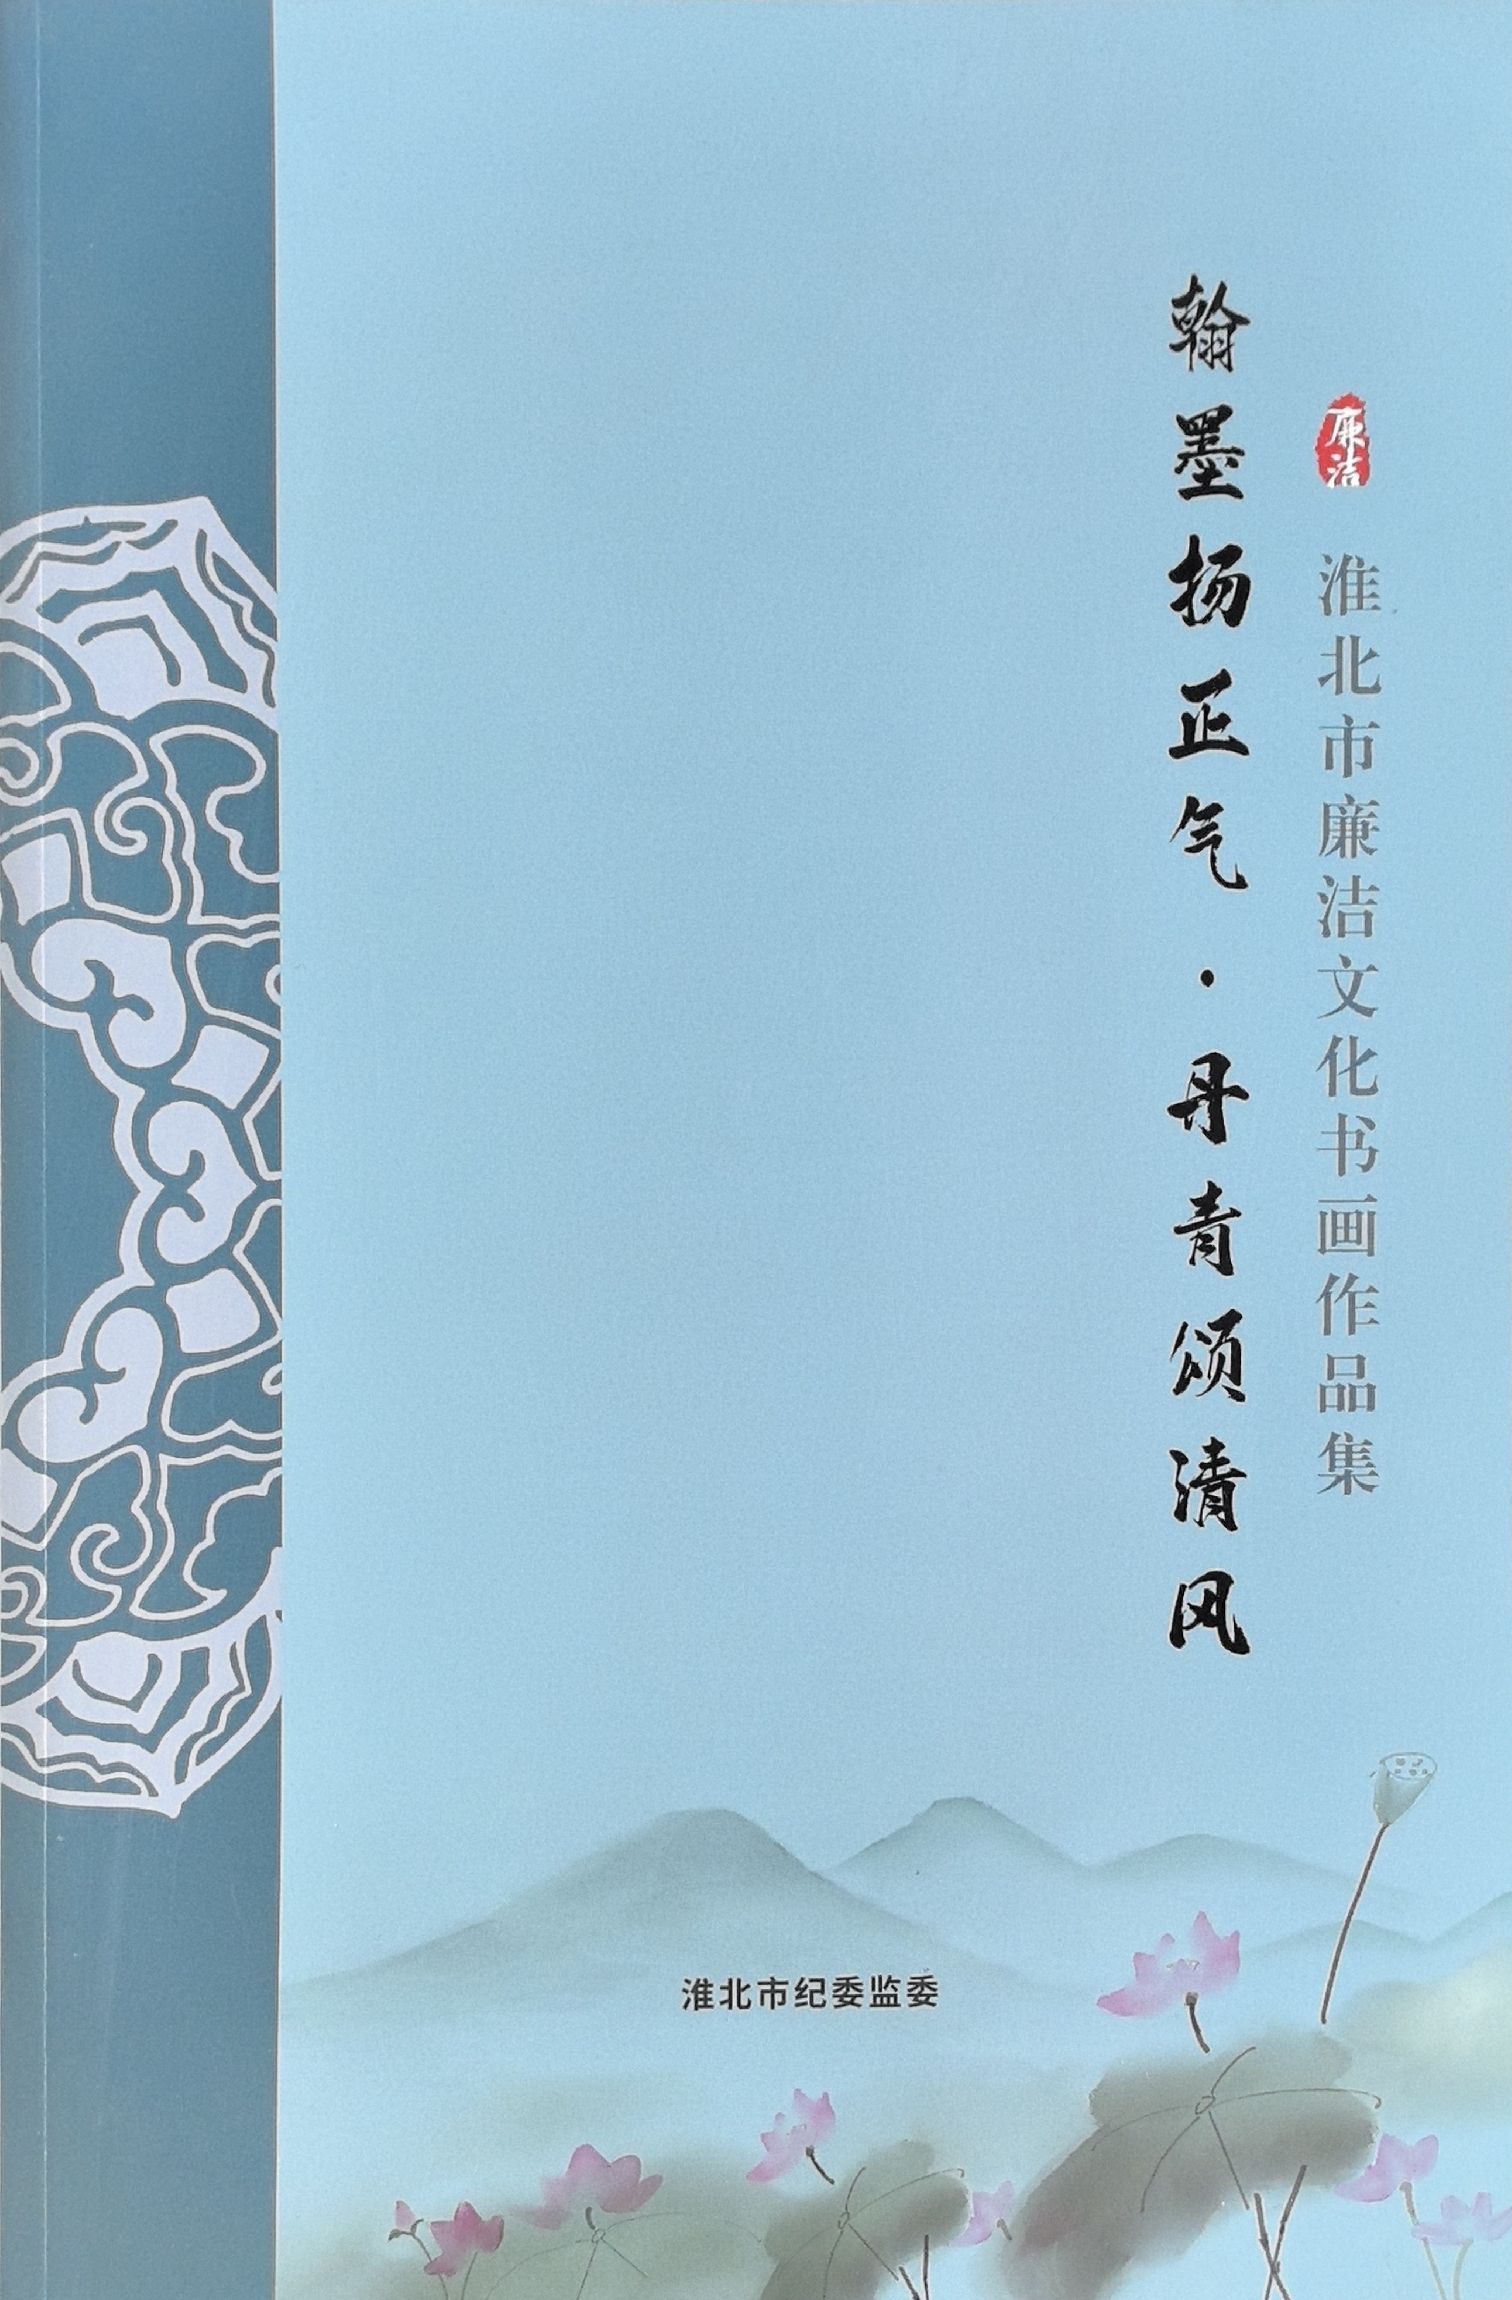 廉洁
淮北市廉洁文化书画作品集
翰墨扬正气·丹青颂清风
淮北市纪委监委